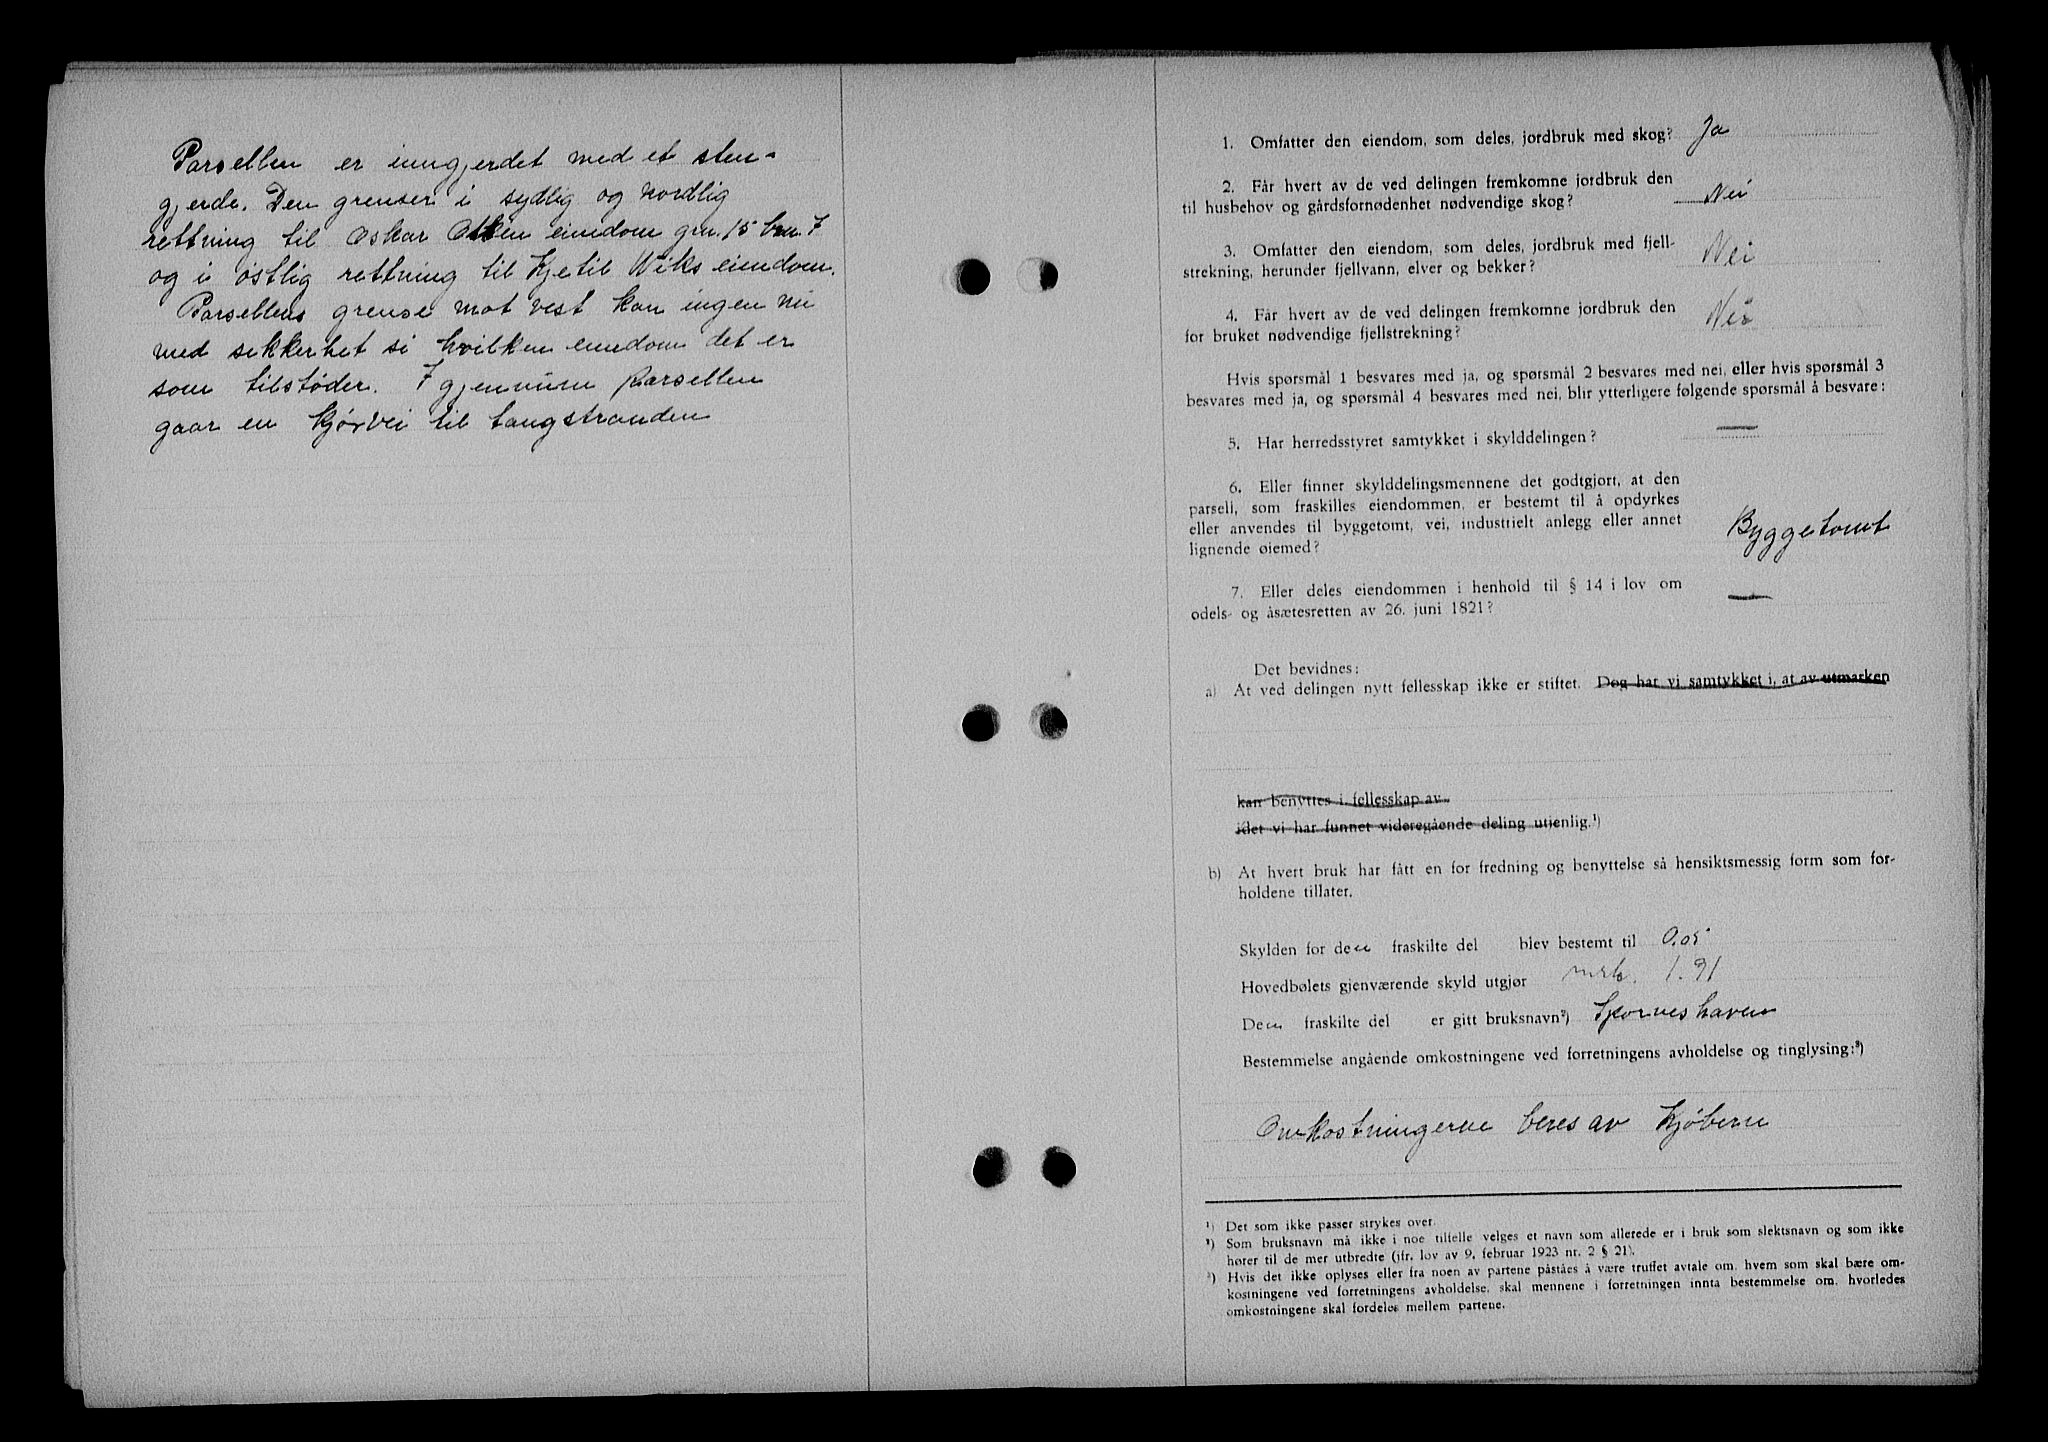 Parsellen er inngjerdet med et sten-
gjerde. Den grenser i sydlig og nordlig
rettning til Oskar eiendom grn. 15 brn. 7
og i østlig rettning til Kjetil Wiks eiendom.
Parsellens grense mot vest kan ingen nu
med sikkerhet si hvilken eiendom det er
som tilstøder. Igjennum parsellen
gaar en kjørvei til tangstranden
1. Omfatter den eiendom, som deles, jordbruk med skog? Ja
2. Får hvert av de ved delingen fremkomne jordbruk den
til husbehov og gårdsfornødenhet nødvendige skog? Nei
3. Omfatter den eiendom, som deles, jordbruk med fjell-
strekning, herunder fjellvann, elver og bekker? Nei
4. Får hvert av de ved delingen fremkomne jordbruk den
for bruket nødvendige fjellstrekning? Nei
Hvis spørsmål 1 besvares med ja, og spørsmål 2 besvares med nei, eller hvis spørsmål 3
besvares med ja, og spørsmål 4 besvares med nei, blir ytterligere følgende spørsmål å besvare:
5. Har herredsstyret samtykket i skylddelingen? —
6. Eller finner skylddelingsmennene det godtgjort, at den
parsell, som fraskilles eiendommen, er bestemt til å opdyrkes
eller anvendes til byggetomt, vei, industrielt anlegg eller annet
lignende øiemed? Byggetomt
7. Eller deles eiendommen i henhold til § 14 i lov om
odels- og åsætesretten av 26. juni 1821? —
Det bevidnes:
a) At ved delingen nytt fellesskap ikke er stiftet. Dog har vi samtykket i, at av utmarken
kan benyttes i fellesskap av
idet vi har funnet videregående deling utjenlig.¹)
b) At hvert bruk har fått en for fredning og benyttelse så hensiktsmessig form som for-
holdene tillater.
Skylden for den fraskilte del blev bestemt til 0.05
Hovedbølets gjenværende skyld utgjør mrk. 1.91
Den fraskilte del er gitt bruksnavn²)
Bestemmelse angående omkostningene ved forretningens avholdelse og tinglysing:³)
Omkostningerne beres av Kjøberne
¹) Det som ikke passer strykes over.
²) Som bruksnavn må ikke i noe tilfelle velges et navn som allerede er i bruk som slektsnavn og som ikke
hører til de mer utbredte (jfr. lov av 9. februar 1923 nr. 2 § 21).
³) Hvis det ikke oplyses eller fra noen av partene påståes å være truffet avtale om, hvem som skal bære om-
kostningene ved forretningens avholdelse, skal mennene i forretningen innta bestemmelse om, hvorledes
omkostningene skal fordeles mellem partene.